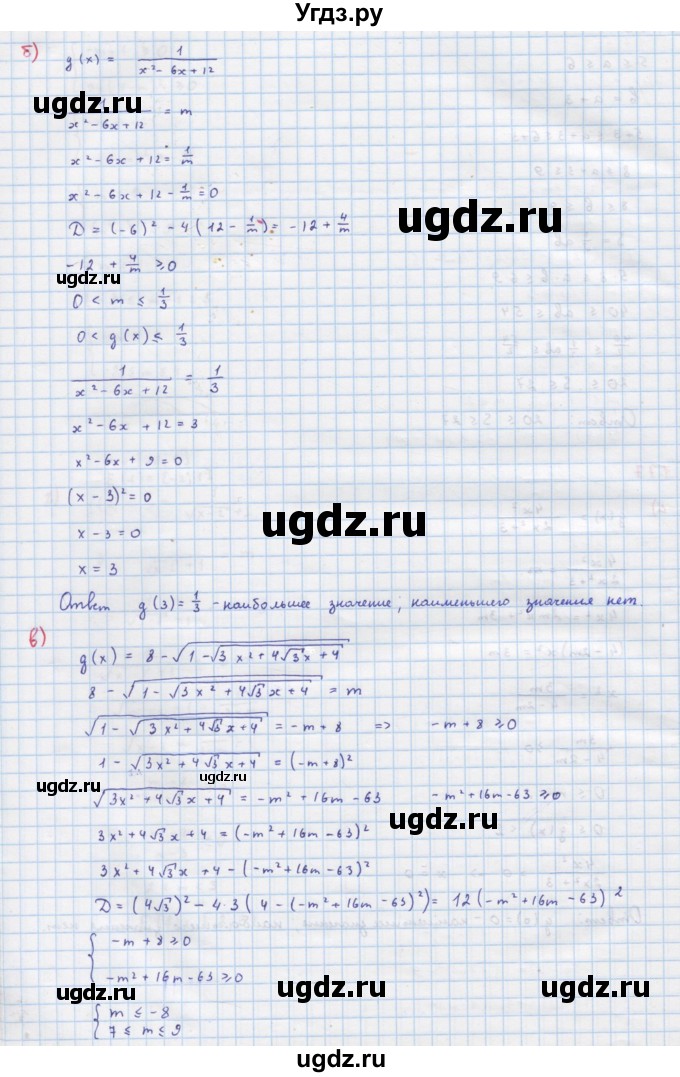 Угдз.ру
б) g(x) = 1/(x² - 6x + 12)
ugdz.ru
x² - 6x + 12 = m
x² - 6x + 12 = 1/m
x² - 6x + 12 - 1/m = 0
D = (-6)² - 4(12 - 1/m) = -12 + 4/m
ugdz.ru
-12 + 4/m ≥ 0
ugdz.ru
0 < m ≤ 1/3
0 < g(x) ≤ 1/3
1/(x² - 6x + 12) = 1/3
x² - 6x + 12 = 3
x² - 6x + 9 = 0
(x - 3)² = 0
ugdz.ru
x - 3 = 0
x = 3
Ответ g(3) = 1/3 - наибольшее значение, наименьшего значения нет.
в) g(x) = 8 - √(1 - √(3x² + 4√3x + 4))
8 - √(1 - √(3x² + 4√3x + 4)) = m
√(1 - √(3x² + 4√3x + 4)) = -m + 8 => -m + 8 ≥ 0
1 - √(3x² + 4√3x + 4) = (-m + 8)²
ugdz.ru
ugdz.ru
√(3x² + 4√3x + 4) = -m² + 16m - 63 -m² + 16m - 63 ≥ 0
ugdz.ru
3x² + 4√3x + 4 = (-m² + 16m - 63)²
3x² + 4√3x + 4 - (-m² + 16m - 63)²
D = (4√3)² - 4·3(4 - (-m² + 16m - 63)²) = 12(-m² + 16m - 63)²
{ -m + 8 ≥ 0
-m² + 16m - 63 ≥ 0
ugdz.ru
ugdz.ru
{ m ≤ -8
7 ≤ m ≤ 9
ugdz.ru